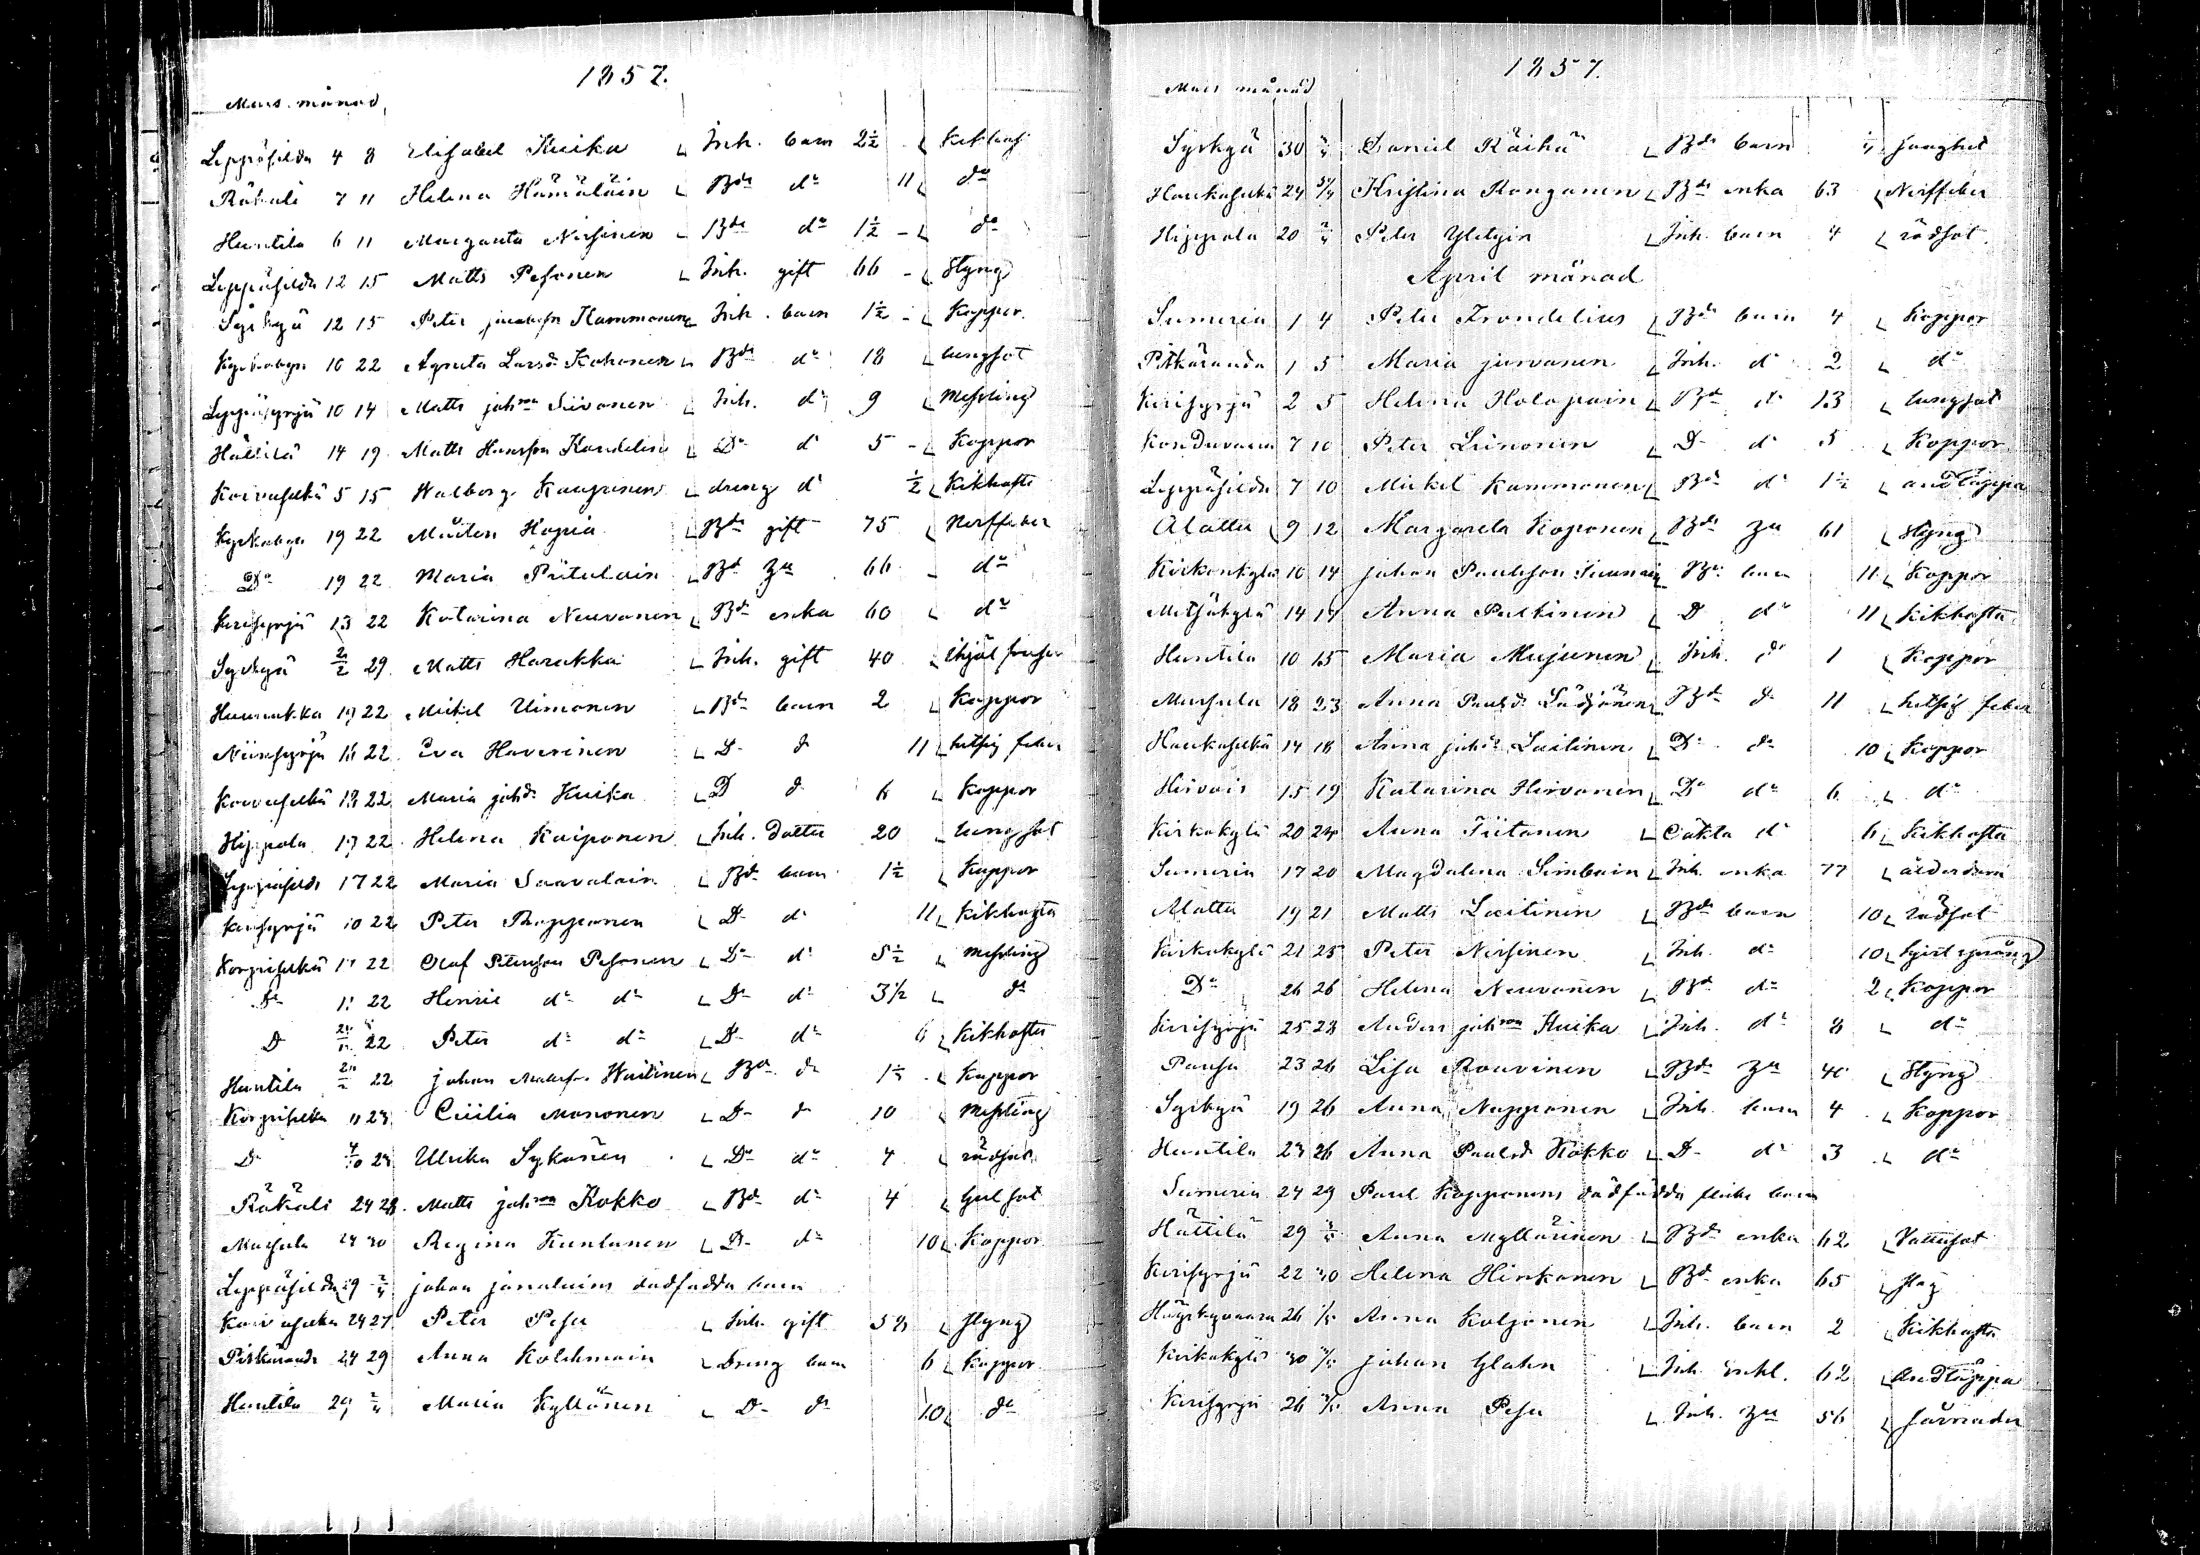 1857.
Mars månad,
Leppäsilda 4 8 Elisabet Kuika Inh. barn 2½ Kikhost
Räkäli 7 11 Helena Hämäläin Bde do 11 do
Huntila 6 11 Margareta Nissinen Bde do 1½ do
Leppäsilda 12 15 Matts Pesonen Inh. gift 66 Styng
Syskyä 12 15 Peter Jacobsson Kammonen Inh. barn 1½ Koppor
10 22 Agneta Larsdr Kohonen Bde do 18 lungsot
Leppäsyrjä 10 14 Matts johson Siivonen Inh. do 9 Messling
Hättilä 14 19 Matts Hansson Kondelin Do do 5 Koppor
Koivuselkä 5 15 Walborg Kauppinen dreng do ½ Kikhosta
Kyrkobyn 19 22 Mårten Hopia Bde gift 75 Nerffeber
Do 19 22 Maria Piitulain Bde Zu 66 do
Kirisyrjä 13 22 Katarina Neuvonen Bde enka 60 do
Syskyä 2/2 29 Matts Harakka Inh. gift 40 ihjäl frusen
19 22 Mickel Uimonen Bde barn 2 Koppor
Niinisyrjä 16 22 Eva Haverinen D- do 11 hetsig feber
Koivuselkä 18 22 Maria johdr Kuika D do 6 Koppor
Hippola 19 22 Helena Kaiponen Inh. Dotter 20 lungsot
Leppäsilda 17 22 Maria Saavalain Bde barn 1½ Koppor
Kirisyrjä 10 22 Peter Thopponen D- do 11 Kikhosta
Korpiselkä 22 Olaf Petersson Pesonen D- do 5½ Messling
Do 22 Henric do do Do do 3½ do
D 22 Peter do do D- do 6 Kikhosta
Huntila 22 johan Matsson Wäitinen Bde do 1½ Koppor
Korpiselkä 11 23 Cecilia Mononen D- do 10 Messling
Do 24 Ulrika Sykönen Do do 4 rödsot
Räkäli 24 28 Matts johson Kokko Bde do 4 Gulsot
Mursula 24 30 Regina Kuntonen D- do 10 Koppor
Leppäsilda 29 2/4 johan janaluins dödfödda barn
Koivuselkä 24 27 Peter Pesu Inh. gift 58 Styng
Pitkäranda 24 29 Anna Kolehmain Dreng barn 6 Koppor
Huntila 29 2/4 Maria Kyllönen D- do 10 do
1857.
Mars månad
Syskyä 30 2/4 Daniel Räihä Bde barn
Haukaselkä 24 Kristina Ronganen Bde enka 63 Nerffeber
Hippola 20 2/4 Peter Inh. barn 4 rödsot
April månad
Sumeria 1 4 Peter Frondelius Bde barn 4 Koppor
Pitkäranda 1 5 Maria jurvanen Inh. do 2 do
Kirisyrjä 2 5 Helena Holopain Bde do 13 lungsot
Konduvaara 7 10 Peter Leinonen D- do 5 Koppor
Leppäsilda 7 10 Mickel Kammonen Bde do 1½ andtäppa
Alattu 9 12 Margareta Koponen Bde Zu 61 Styng
Kirkonkylä 10 14 johan Paulsson Bde barn 11 Koppor
Metsäkylä 14 14 Anna Pulkinen D do 11 Kikhosta
Huntila 10 15 Maria Mujunen Inh. do 1 Koppor
Mursula 18 23 Anna Paulsdr Bde do 11 hetsig feber
Haukaselkä 14 18 Anna johsdr Laitinen Do do 10 Koppor
Hirvois 15 19 Katarina Hirvonen Do do 6 do
Kirkokylä 20 24 Anna Tiitanen Oäkta do 6 Kikhosta
Sumeria 17 20 Magdalena Simbain Inh. enka 77 ålderdom
Alattu 19 21 Matts Laitinen Bde barn 10 rödsot
Kirkokylä 21 25 Peter Nissinen Inh. do 10 hjertsprång
Do 26 26 Helena Neuvonen Bde do 2 Koppor
Kirisyrjä 25 28 Anders johson Kuika Inh. do 8 do
Pausu 23 26 Lisa Rouvinen Bde Zu 40 Styng
Syskyä 19 26 Anna Nupponen Inh. barn 4 Koppor
Huntila 23 26 Anna Paulsdr Kokko D- do 3 do
Sumeria 24 29 Paul Kopponens dödfödda flicke barn
Hättilä 29 3/5 Anna Myllärinen Bde enka 62 Vattusot
Kirisyrjä 22 30 Helena Hinkonen Bde enka 65 slag
26 Anna Koljonen Inh. barn 2 Kikhosta
Kirkokylä 30 johan Glahn Inh. enkl. 62 Andtäppa
Kirisyrjä 26 Anna Pesu Inh. Zu 56 sårnader